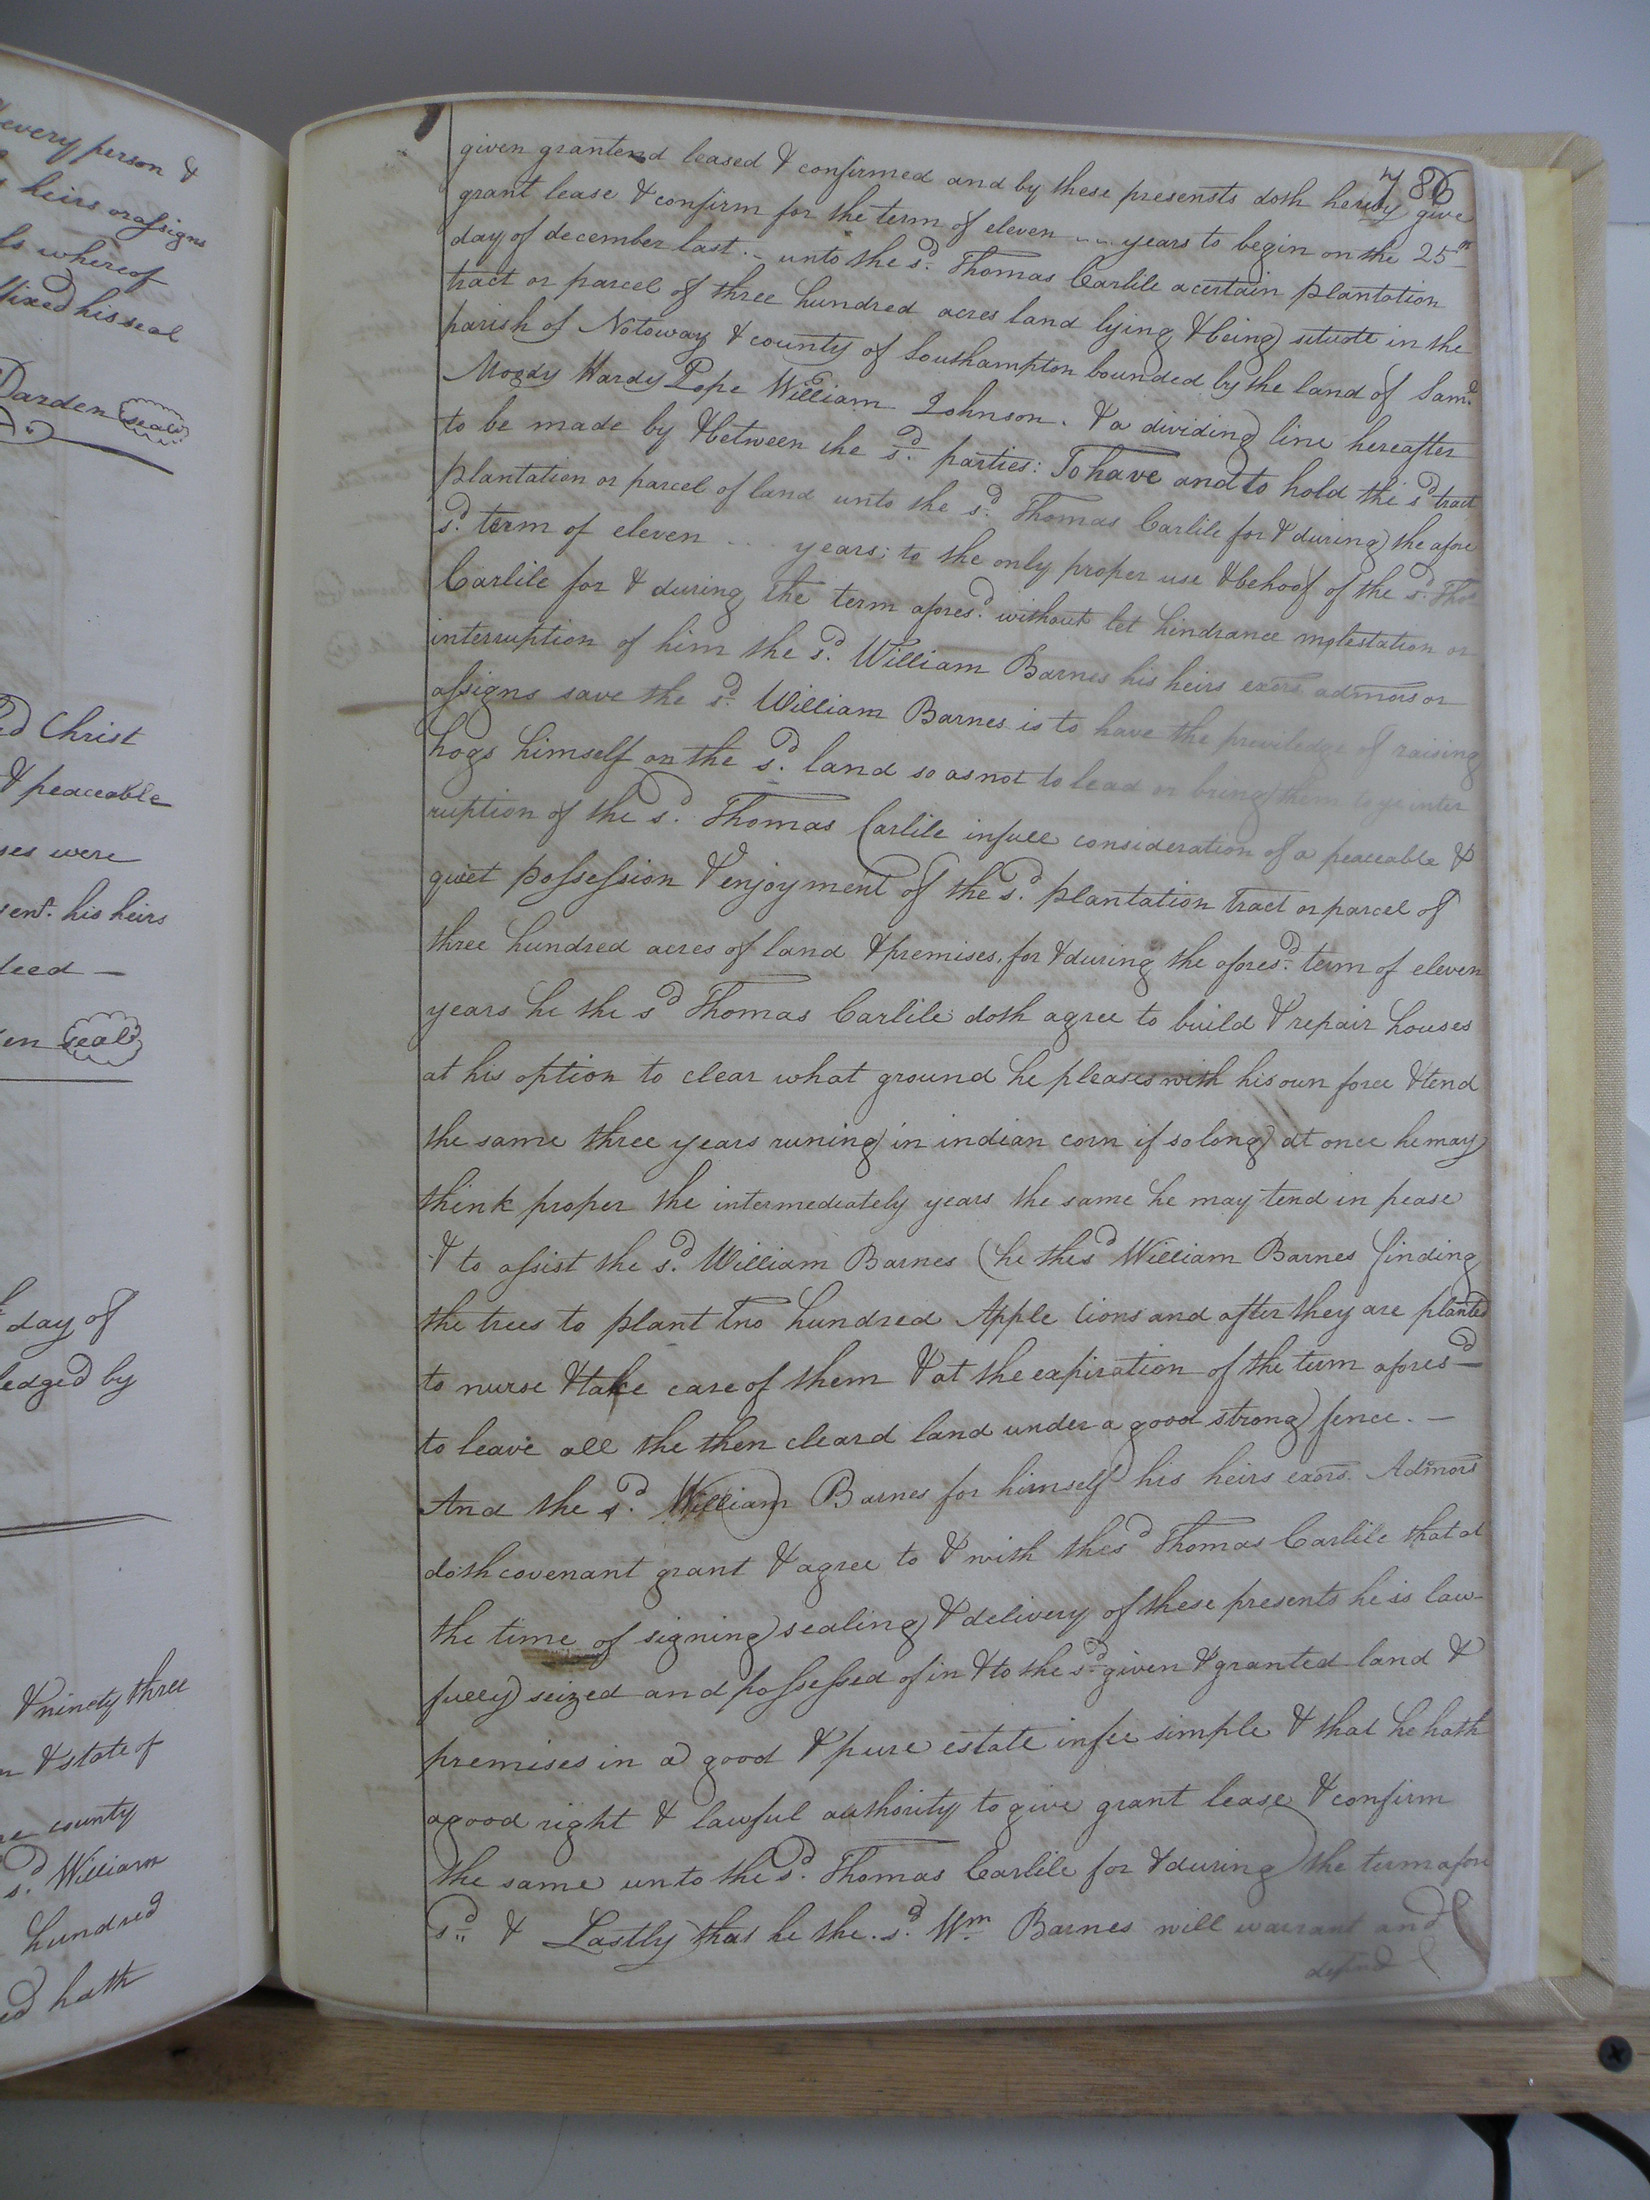 every person &
heirs or assigns
whereof
fixed his seal
Darden seal
ed Christ
& peaceable
ses were
sent. his heirs
deed —
en seal
day of
ledged by
& ninety three
& state of
county
sd. William
hundred
ed hath
786
given grantend leased & confirmed and by these presensts doth hereby give
grant lease & confirm for the term of eleven .... years to begin on the 25th
day of december last . – unto the sd. Thomas Carlile a certain plantation
tract or parcel of three hundred acres land lying & being situate in the
parish of Notoway & county of Southampton bounded by the land of Saml.
Moody Hardy Pope William Johnson . & a dividing line hereafter
to be made by & between the sd. parties: To have and to hold the sd tract
plantation or parcel of land unto the sd. Thomas Carlile for & during the afore
sd. term of eleven .... years; to the only proper use & behoof of the sd. Thos
Carlile for & during the term aforesd. without let hindrance molestation or
interruption of him the sd. William Barnes his heirs exors admors or
assigns save the sd. William Barnes is to have the priviledge of raising
hogs himself on the sd. land so as not to lead or bring them to ye inter
ruption of the sd. Thomas Carlile in full consideration of a peaceable &
quiet possession & enjoyment of the sd. plantation tract or parcel of
three hundred acres of land & premises. for & during the aforesd. term of eleven
years he the sd Thomas Carlile doth agree to build & repair houses
at his option to clear what ground he pleases with his own force & tend
the same three years runing in indian corn if so long at once he may
think proper the intermediately years the same he may tend in pease
& to assist the sd. William Barnes (he the sd William Barnes finding
the trees to plant two hundred Apple cions and after they are planted
to nurse & take care of them & at the expiration of the term aforesd
to leave all the then cleard land under a good strong fence. –
And the sd. William Barnes for himself his heirs exors. Admors
doth covenant grant & agree to & with the sd Thomas Carlile that at
the time of signing sealing & delivery of these presents he is law-
fully seized and possessed of in & to the sd. given & granted land &
premises in a good & pure estate in fee simple & that he hath
a good right & lawful authority to give grant lease & confirm
the same unto the sd. Thomas Carlile for & during the term afore
sd. & Lastly that he the . sd. Wm Barnes will warrant and
defend